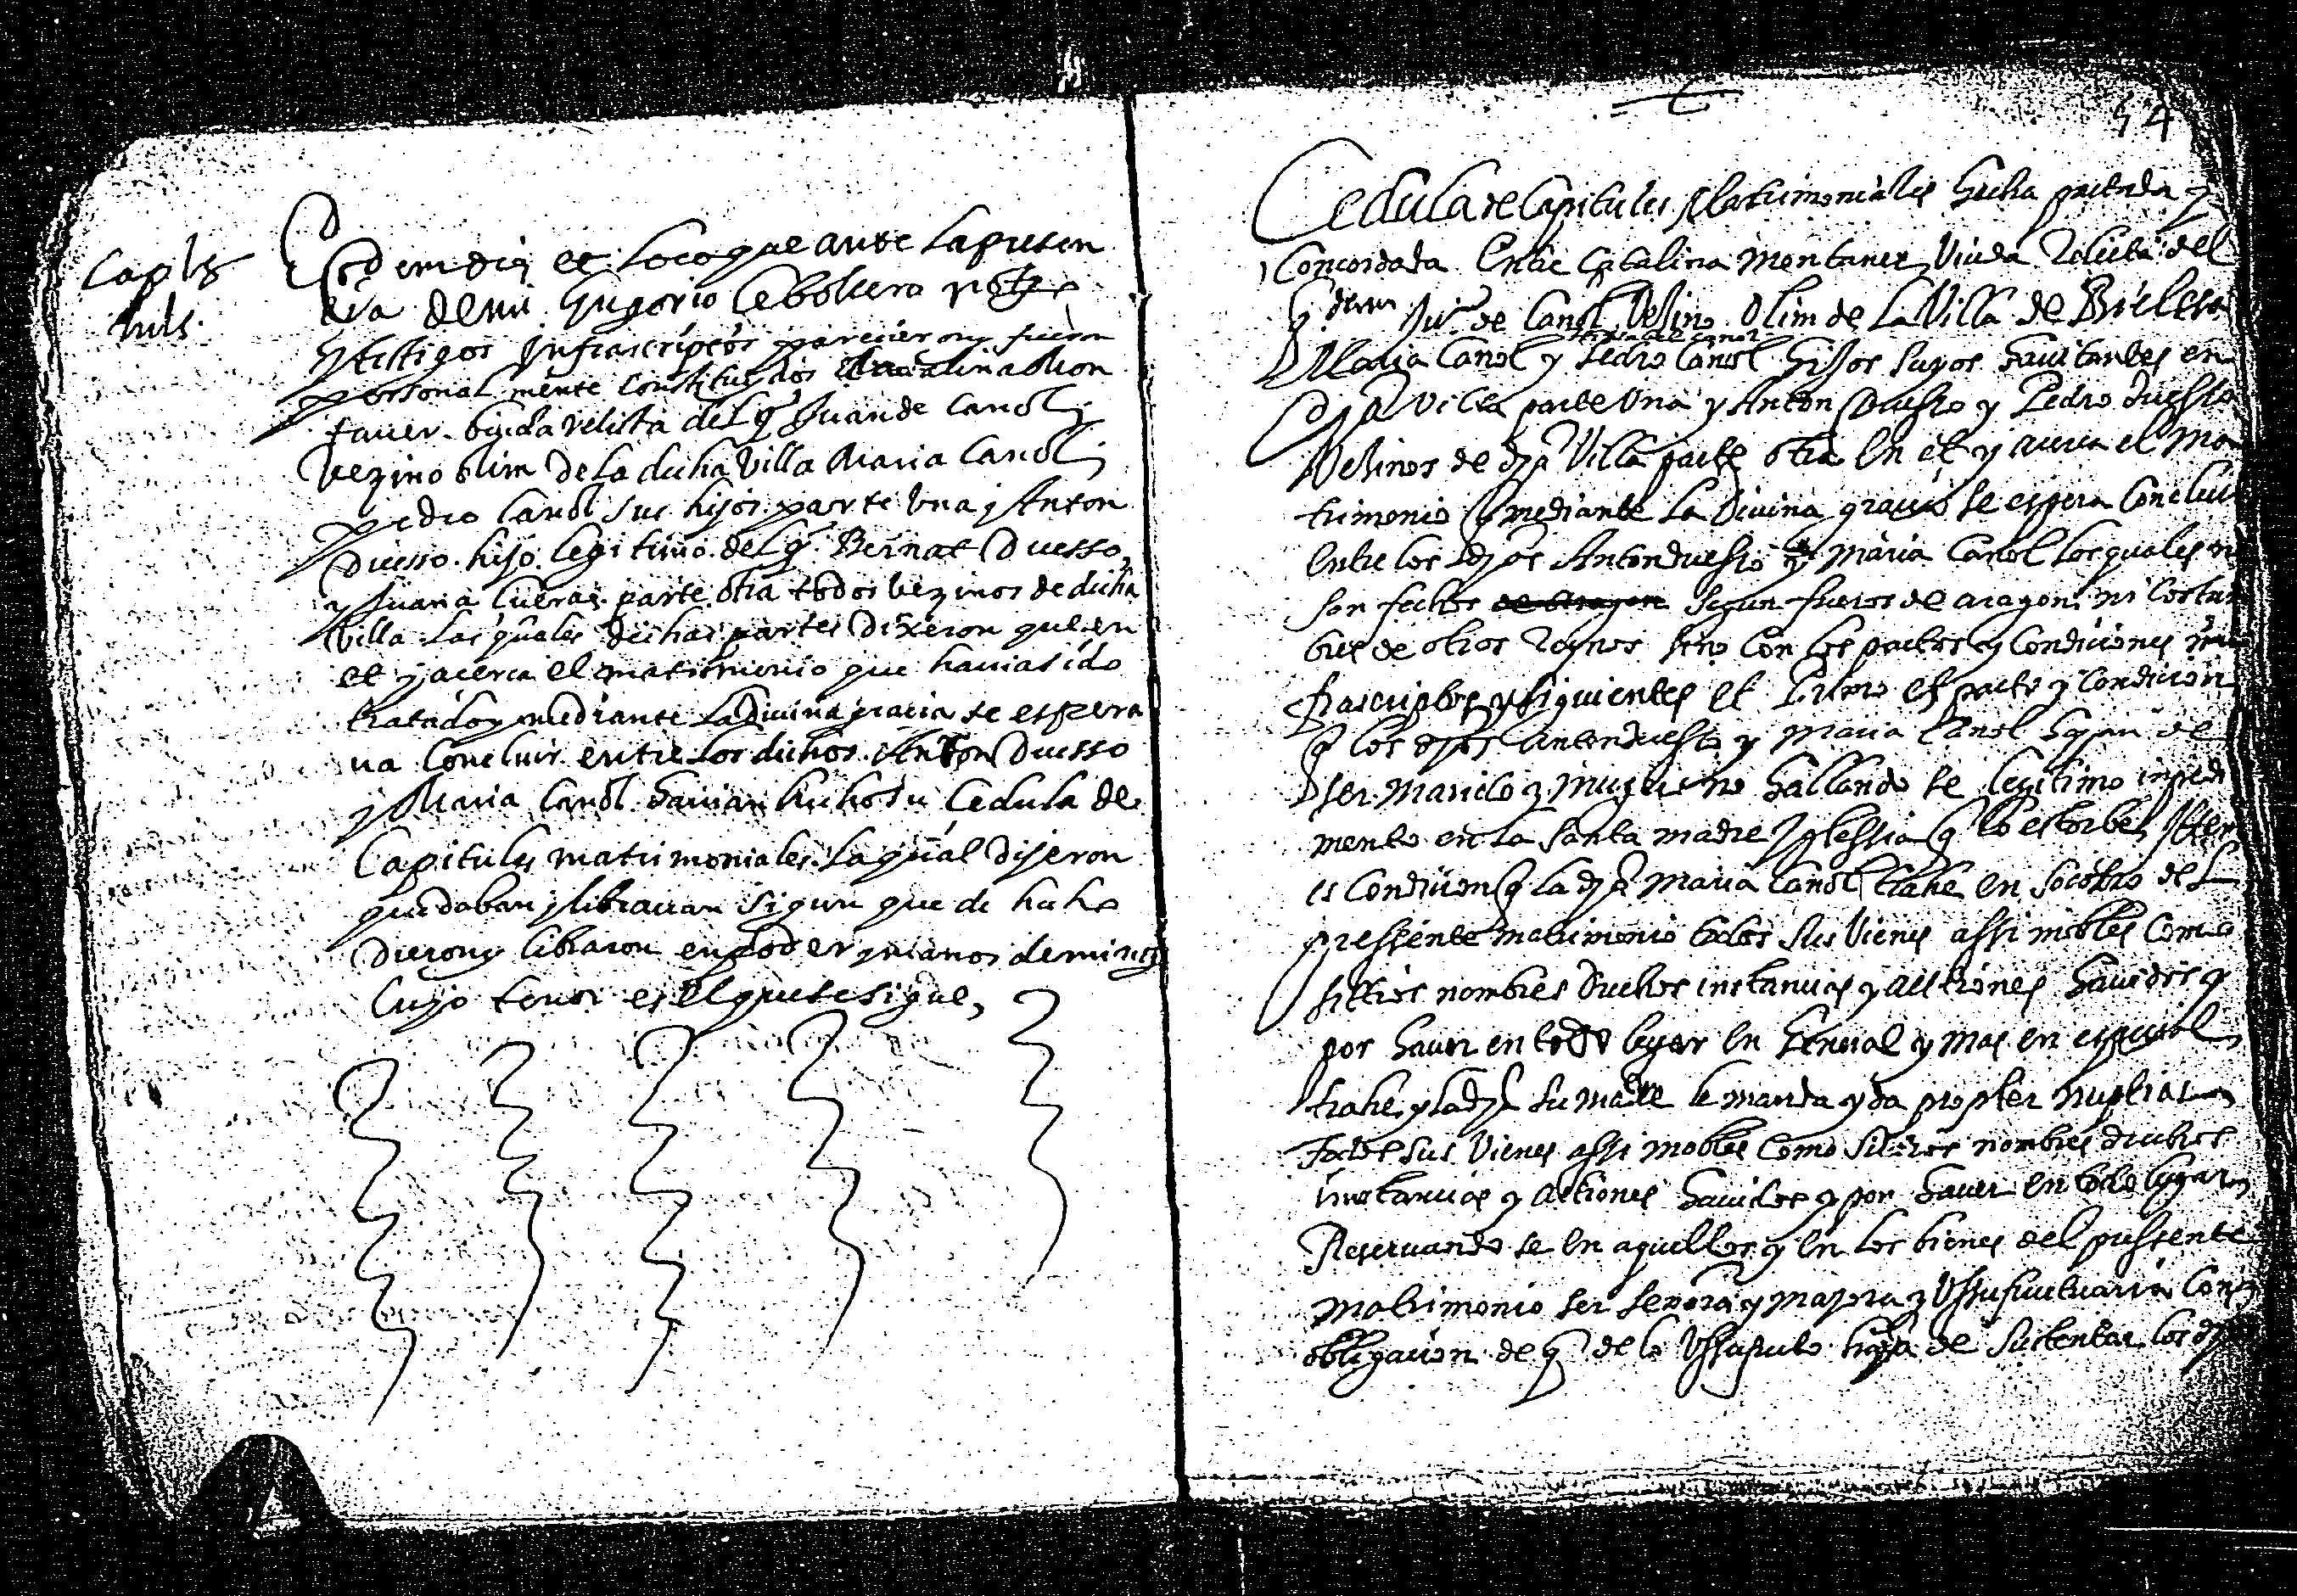 Capls
mls.
Eodem die et loco que ante la presen
cia de mi Gregorio Cebollero notº
y testigos infrascriptos parecieron y fueron
personalmente constituydos Catalina Mon
taner biuda relicta del qº Juan de Canol
vezino olim de la dicha villa Maria Canol
y Pedro Canol sus hijos parte una y Anton
Duesso hijo legitimo del qº Bernat Duesso
y Juana Cueras parte otra todos vezinos de dicha
villa las quales dichas partes dixeron que en
et y acerca el matrimonio que hauia sido
tratado y mediante la Divina gracia se espera
ua concluir entre los dichos Anton Duesso
y Maria Canol hauian hecho su cedula de
Capitules matrimoniales la qual dijeron
que daban y librauan segun que de hecho
dieron y libraron en poder y manos de mi notº
cuyo tenor es el que se sigue,
54
Cedula de Capitules Matrimoniales hecha pactada y
Concordada Entre Catalina Montaner Viuda Relicta del
qº Juº de Canol Vezino Olim de la Villa de Bielsa
Maria Canol y Pedro Canol hijos suyos hauitantes en
dja Villa parte una y Anton Duesso y Pedro Duesso
Vezinos de dja Villa parte otra en et y acerca el Ma
trimonio q mediante la Divina gracia se espera Concluir
entre los djos Anton Duesso y Maria Canol los quales ni
son fechos de Aragon segun fueros de aragon ni Costum
bres de otros Reynos sino con los pactos y Condiciones in
frascriptos y siguientes et Primo es pacto y Condicion
q los djos Anton Duesso y Maria Canol hayan de
ser Marido y Muger no hallandose legitimo impedi
mento en la santa madre Yglessia q lo estorbe Item
es Condicion q la dja Maria Canol trahe en socorro del
pressente matrimonio todos sus Vienes assi mobles Como
sittios nombres Drechos instancias y acttiones hauidos y
por hauer en todo lugar en General y mas en especial
trahe y la dja su madre le manda y da propter nuptias
todos sus Vienes assi mobles Como sitios nombres drechos
instancias y acttiones hauidos y por hauer en todo lugar
Reseruandose en aquellos y en los bienes del pressente
matrimonio ser señora y mayora y Ussufructuaria Con
obligacion de q de lo Ussufructo haya de sustentar los djos